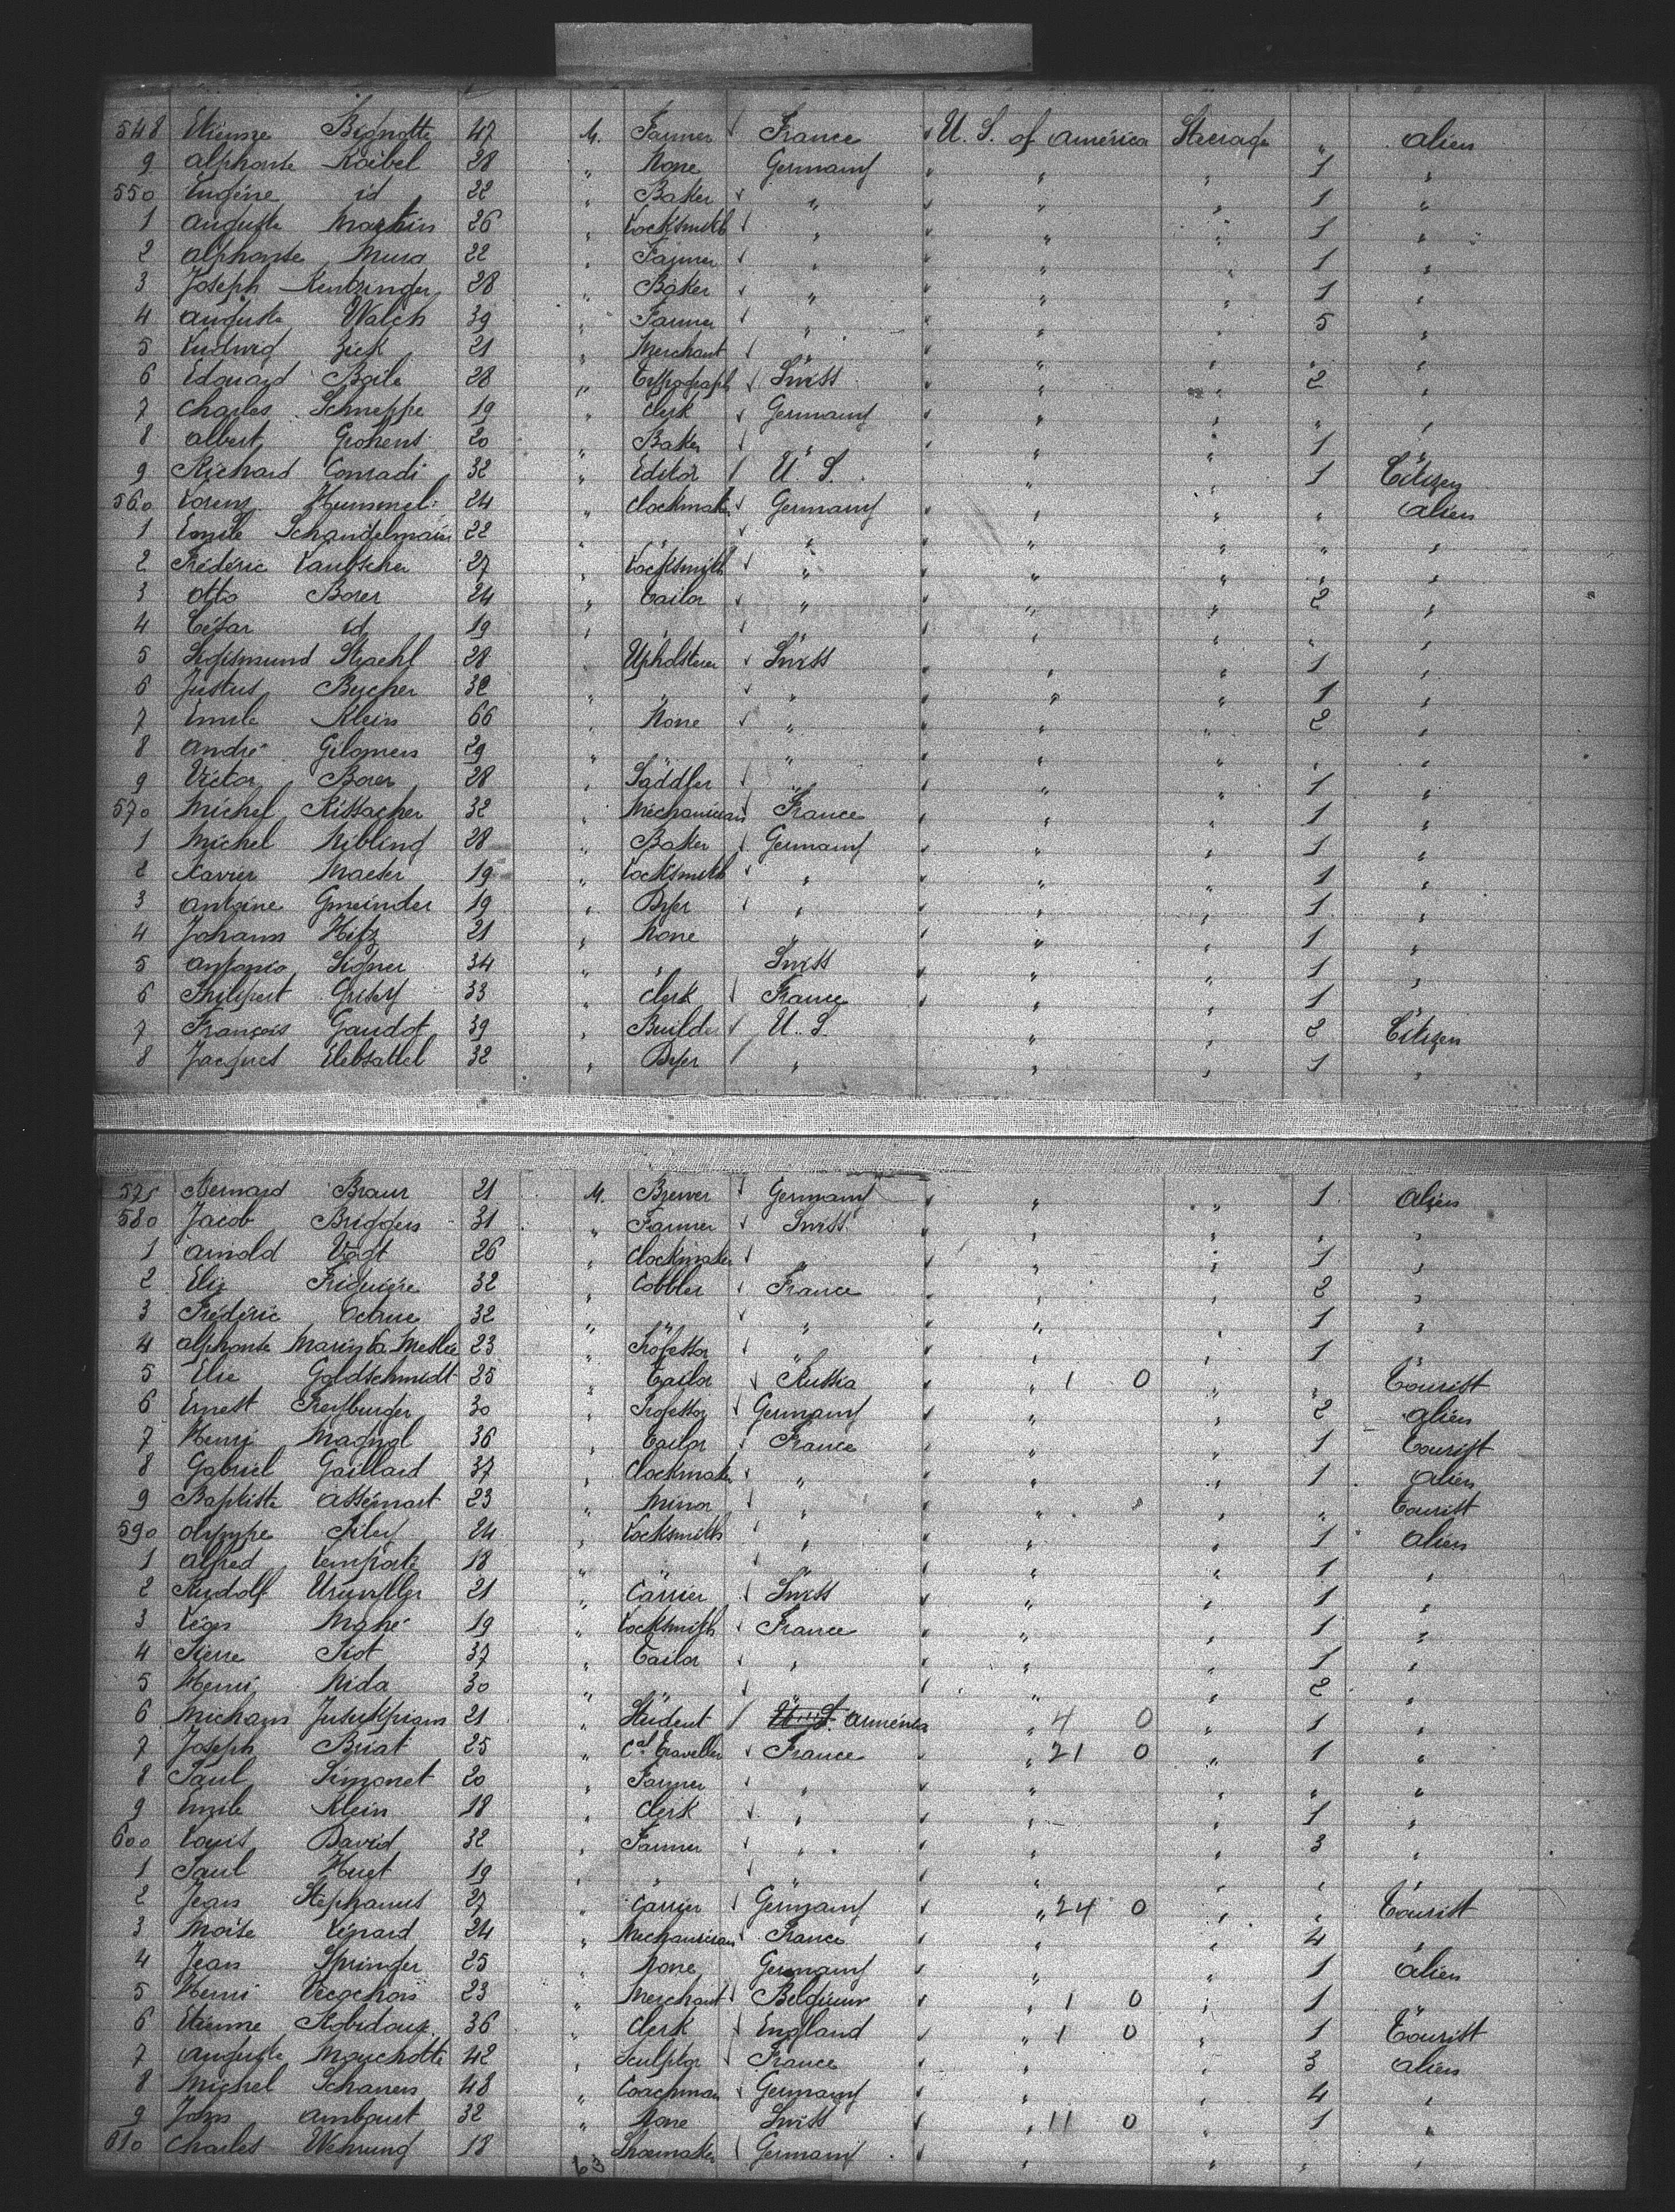 548 Etienne Bignotte 47 M. Farmer France U. S. of América Steerage " alien
9 alphonse Koibel 28 " None Germany " " 1 "
550 Eugène id 22 " Baker " " " 1 "
1 auguste Martin 26 " Locksmith " " " 1 "
2 alphonse Mura 22 " Farmer " " " 1 "
3 Joseph Kentzinger 28 " Baker " " " 1 "
4 auguste Walch 39 " Farmer " " " 5 "
5 Ludwig Zick 21 " Merchant " " " "
6 Edouard Boile 28 " Swiss " " 2 "
7 Charles Schneppe 19 " Clerk Germany " " " "
8 albert Grohens 20 " Baker " " " 1 "
9 Richard Conradi 32 " Editor U. S. " " 1 Citizen
560 Lorenz Hummel 24 " Clockmaker Germany " " " alien
1 Emile Schandelmaier 22 " " " " " " "
2 Frédéric Lautscher 27 " Locksmith " " " " "
3 Otto Borer 24 " Tailor " " " 2 "
4 César id 19 " " " " " " "
5 Sigismund Straehl 28 " Upholsterer Swiss " " 1 "
6 Justus Bucher 32 " " " " " 1 "
7 Emile Klein 66 " None " " " 2 "
8 André Gilomen 29 " " " " " " "
9 Victor Borer 28 " Saddler " " " 1 "
570 Michel Rissacher 32 " Mechanician France " " 1 "
1 Michel Nibling 28 " Baker Germany " " 1 "
2 Xavier Maeser 19 " Locksmith " " " 1 "
3 antoine Gmeinder 19 " Dyer " " " 1 "
4 Johann Hitz 21 " None " " " 1 "
5 antonio Signer 34 " " Swiss " " 1 "
6 Philipert Grisey 33 " Clerk France " " 1 "
7 François Gaudot 39 " Builder U. S. " " 2 Citizen
8 Jacques Elebsattel 32 " Dyer " " " 1 "
575 Bernard Braun 21 M. Brewer Germany " " 1 alien
580 Jacob Briggen 31 " Farmer Swiss " " " "
1 arnold Vogt 26 " Clockmaker " " " 1 "
2 Elie Friguière 32 " Cobbler France " " 2 "
3 Frédéric 32 " " " " " 1 "
4 alphonse Marin La Meslée 23 " Professor " " " 1 "
5 Elie Goldschmidt 25 " Tailor Russia " 1 0 " " Tourist
6 Ernest Freyburger 30 " Professor Germany " " 2 alien
7 Henri Magnol 36 " Tailor France " " 1 Tourist
8 Gabriel Gaillard 37 " Clockmaker " " " 1 alien
9 Baptiste assémart 23 " Minor " " " " Tourist
590 olympe Piley 24 " Locksmith " " " 1 alien
1 alfred 18 " " " " " 1 "
2 Rudolf 21 " Carrier Swiss " " 1 "
3 Léon Mahé 19 " Locksmith France " " 1 "
4 Pierre Piot 37 " Tailor " " " 1 "
5 Henri Nida 30 " " " " " 2 "
6 21 " Student U. S. Arménia " 4 0 " 1 "
7 Joseph Briat 25 " Cal Traveller France " 21 0 " 1 "
8 Paul Simonet 20 " Farmer " " " " "
9 Emile Klein 18 " Clerk " " " 1 "
600 Louis David 32 " Farmer " " " 3 "
1 Paul Huet 19 " " " " " " "
2 Jean Stéphanus 27 " Carrier Germany " 24 0 " " Tourist
3 Moïse Lénard 24 " Mechanician France " " 4 "
4 Jean Springer 25 " None Germany " " 1 alien
5 Henri 23 " Merchant Belgium " 1 0 " 1 "
6 Etienne Robidoux 36 " Clerk England " 1 0 " 1 Tourist
7 auguste Mouchotte 42 " Sculptor France " " 3 alien
8 Michel Schanen 48 " Coachman Germany " " 4 "
9 John ambaut 32 " None Swiss " 11 0 " 1 "
610 Charles Wehrung 18 " Shoemaker Germany " " " "
63